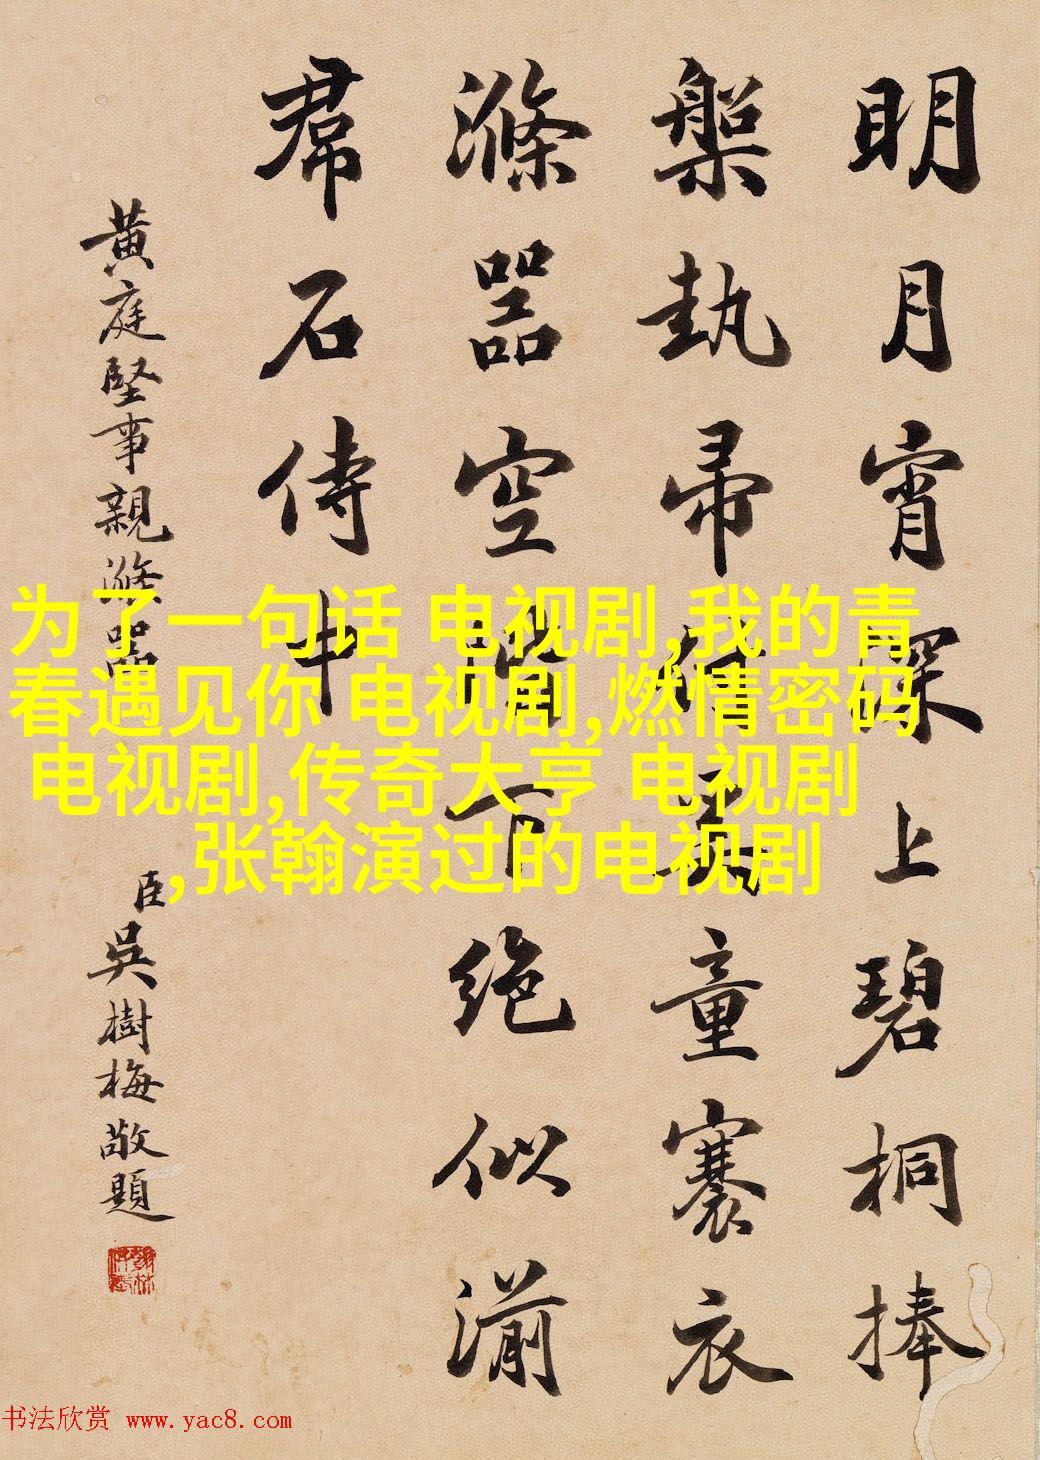 明月宵深上碧桐捧
槃執帚付奚童褰衣
滌器空階下絶似湔
帬石侍中
黄庭堅事親滌器
臣吳樹梅敬題
为了一句话 电视剧,我的青
春遇见你 电视剧,燃情密码
电视剧,传奇大亨 电视剧
,张翰演过的电视剧
书法欣赏 www.yac8.com